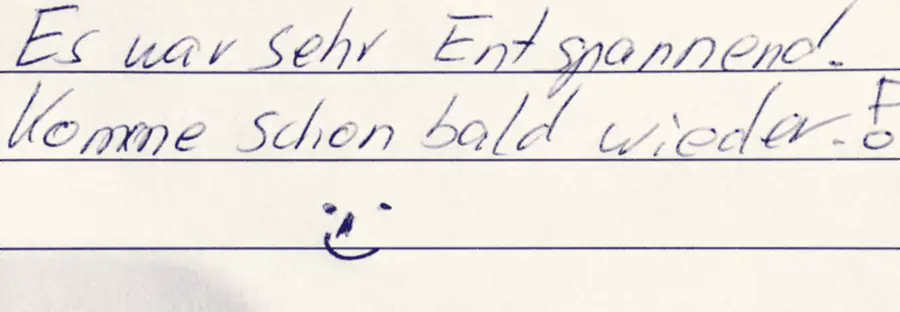 Es war sehr Entspannend.
Komme schon bald wieder.!